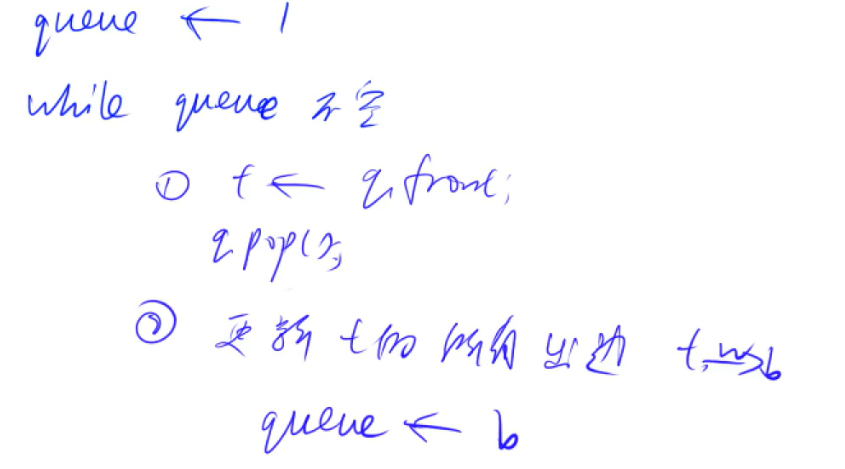 queue ← 1
while queue 不空
① t ← q.front;
q.pop();
② 更新 t的 所有 出边 t -w-> b
queue ← b